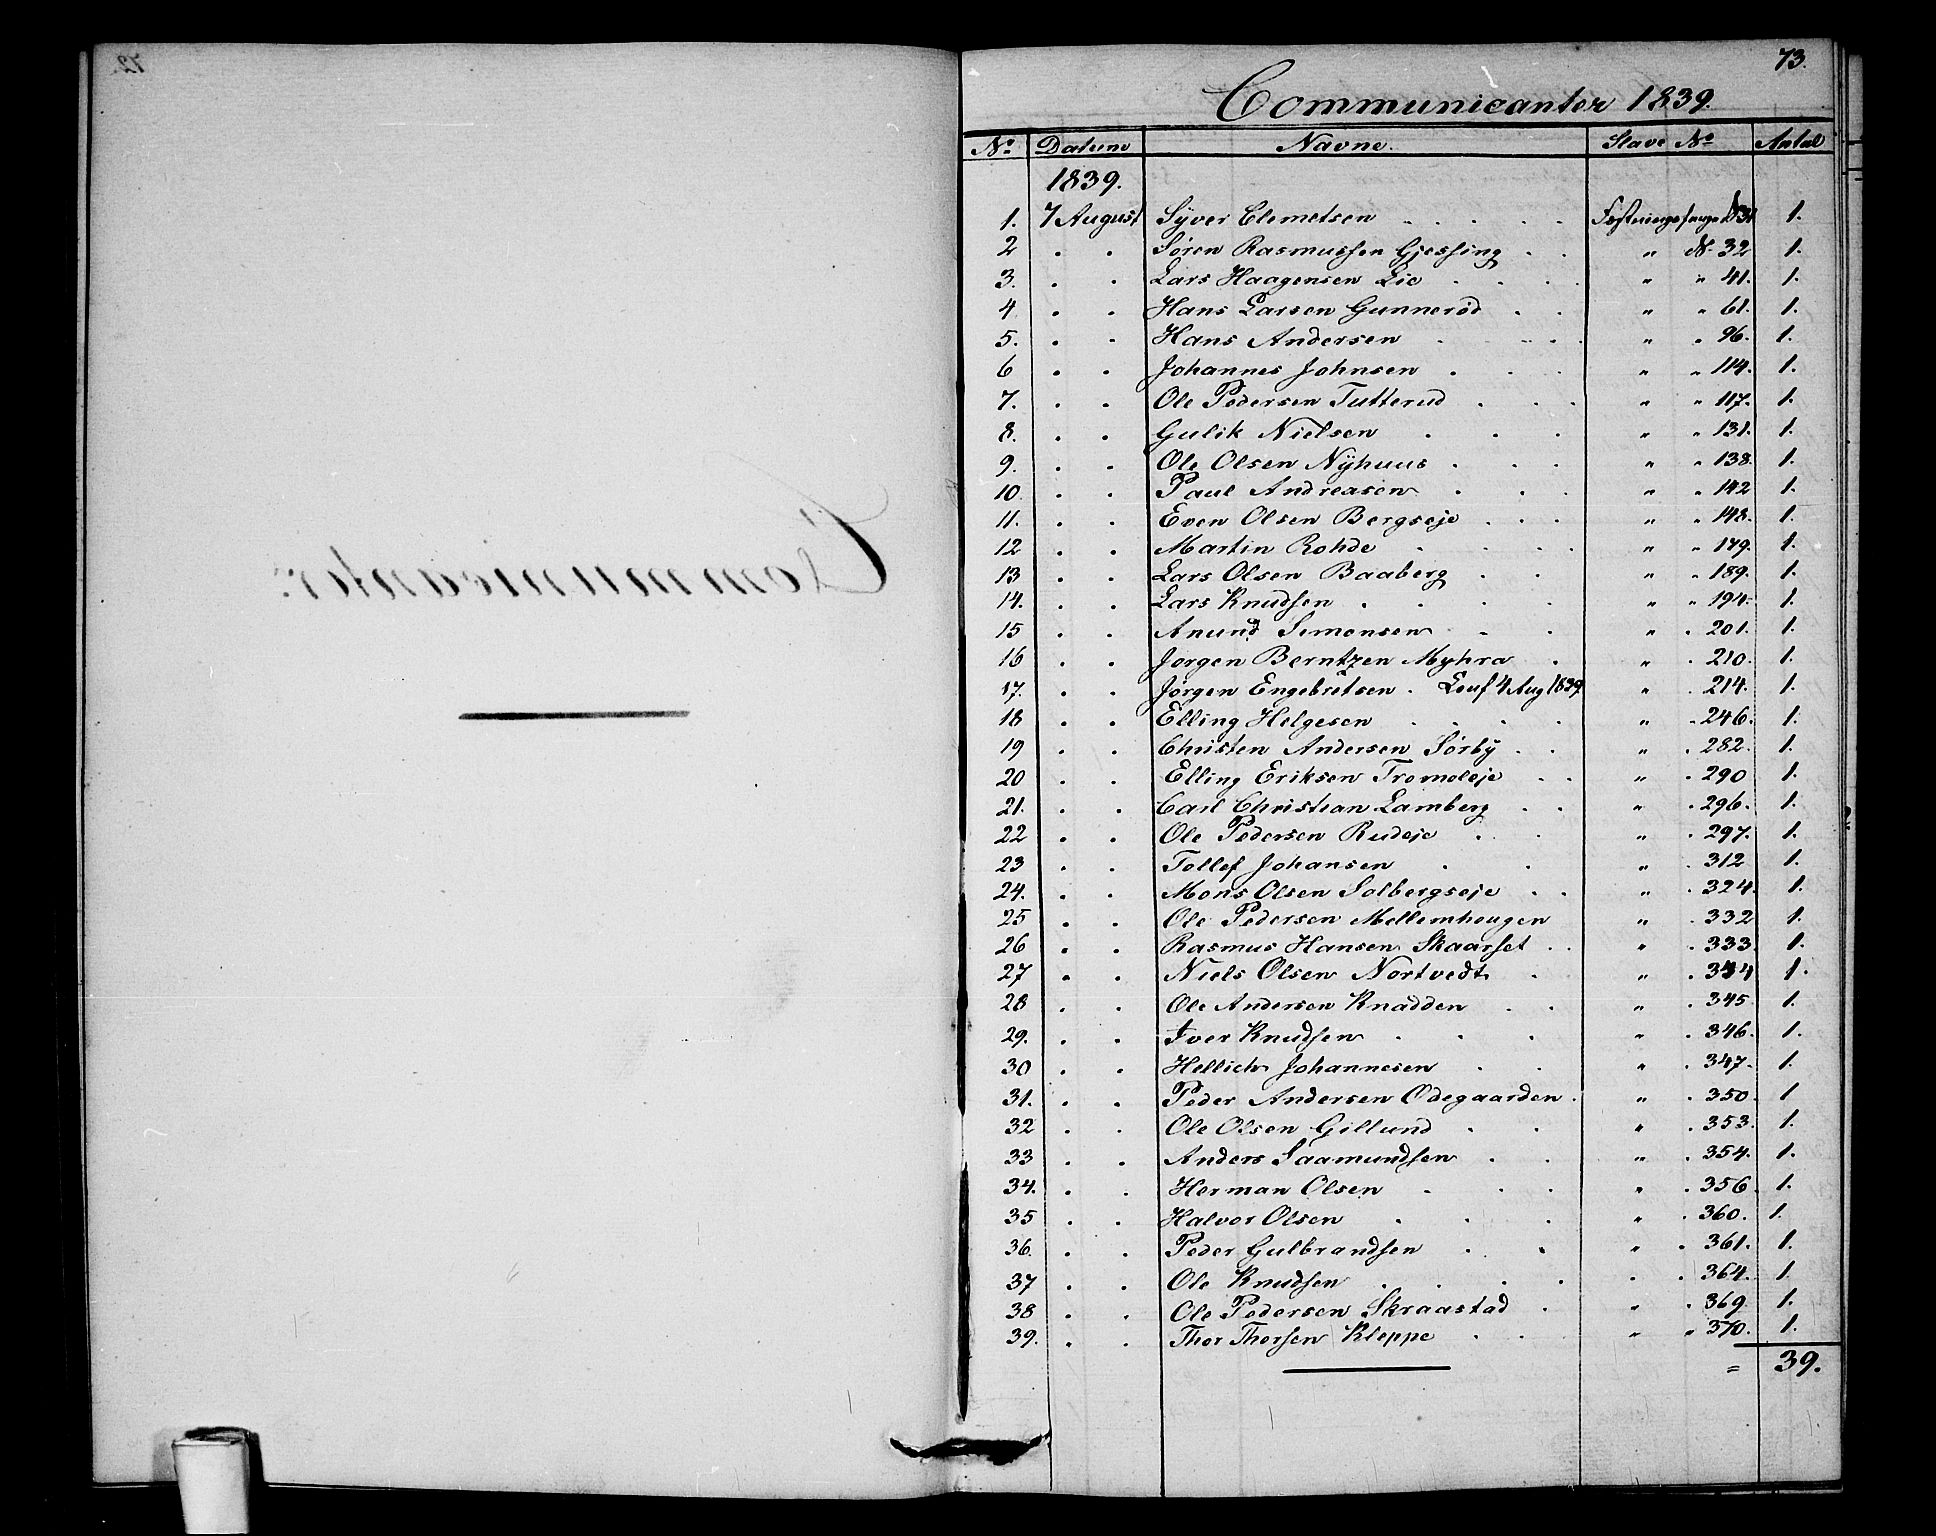 73.
Communicanter 1839.
No Datum Navne. Slave No Antal
1839.
1. 7 August Syver Clemetsen . . . . . Festningsfange No 31 1.
2 . . Søren Rasmussen Gjessing . . " No 32 1.
3. . . Lars Haagensen Lie . . . . " " 41. 1.
4 . . Hans Larsen Gunnerød . . " " 61. 1.
5. . . Hans Andersen . . . . " " 96. 1.
6 . . Johannes Johnsen . . . " " 114. 1.
7. . . Ole Pedersen Tutterud . . . " " 117. 1.
8. . . Gulik Nielsen . . . " " 131. 1.
9. . . Ole Olsen Nÿhuus . . . " " 138. 1.
10. . . Paul Andreasen . . . " " 142 1.
11. . . Even Olsen Bergseje . . . " " 148. 1.
12 . . Martin Rohde . . . . " " 179. 1.
13 . . Lars Olsen Baaberg . . " " 189. 1.
14. . . Lars Knudsen . . . . " " 194. 1.
15 . . Anund Simensen . . " . 201. 1.
16 . . Jørgen Berntzen Myhra . " . 210. 1.
17. . . Jørgen Engebretsen . 4 Aug 1839 " . 214. 1.
18 . . Elling Helgesen . . . . " . 246. 1.
19 . . Christen Andersen Sørbÿ . . " . 282. 1.
20 . . Elling Eriksen Tromoleje . . " . 290 1.
21. . . Carl Christian Lamberg . . " . 296. 1.
22 . . Ole Pedersen Rudeje . . " . 297. 1.
23 . . Tollef Johansen . . " . 312 1.
24. . . Mons Olsen Solbergseje . . " . 324. 1.
25 . . Ole Pedersen Mellemhougen " . 332 1.
26 . . Rasmus Hansen Skaarset . . " . 333. 1.
27 . . Niels Olsen Nortvedt . " . 344 1.
28 . . Ole Andersen Knadden . . " . 345 1.
29. . . Iver Knudsen . . . " . 346. 1.
30 . . Hellich Johannesen . . " . 347. 1.
31. . . Peder Andersen Ødegaarden . " . 350. 1
32 . . Ole Olsen Gillund . . " . 353. 1.
33 . . Anders Saamundsen . . " . 354. 1.
34. . . Herman Olsen . . . " . 356. 1.
35 . . Halvor Olsen . . . " . 360. 1.
36. . . Peder Gulbrandsen . . " . 361. 1.
37 . . Ole Knudsen . . . . . . 364. 1.
38 . . Ole Pedersen Skraastad . " . 369. 1.
39. . . Thor Thorsen Kleppe . . " " 370. 1.
= 39.
72.
Communicanter.